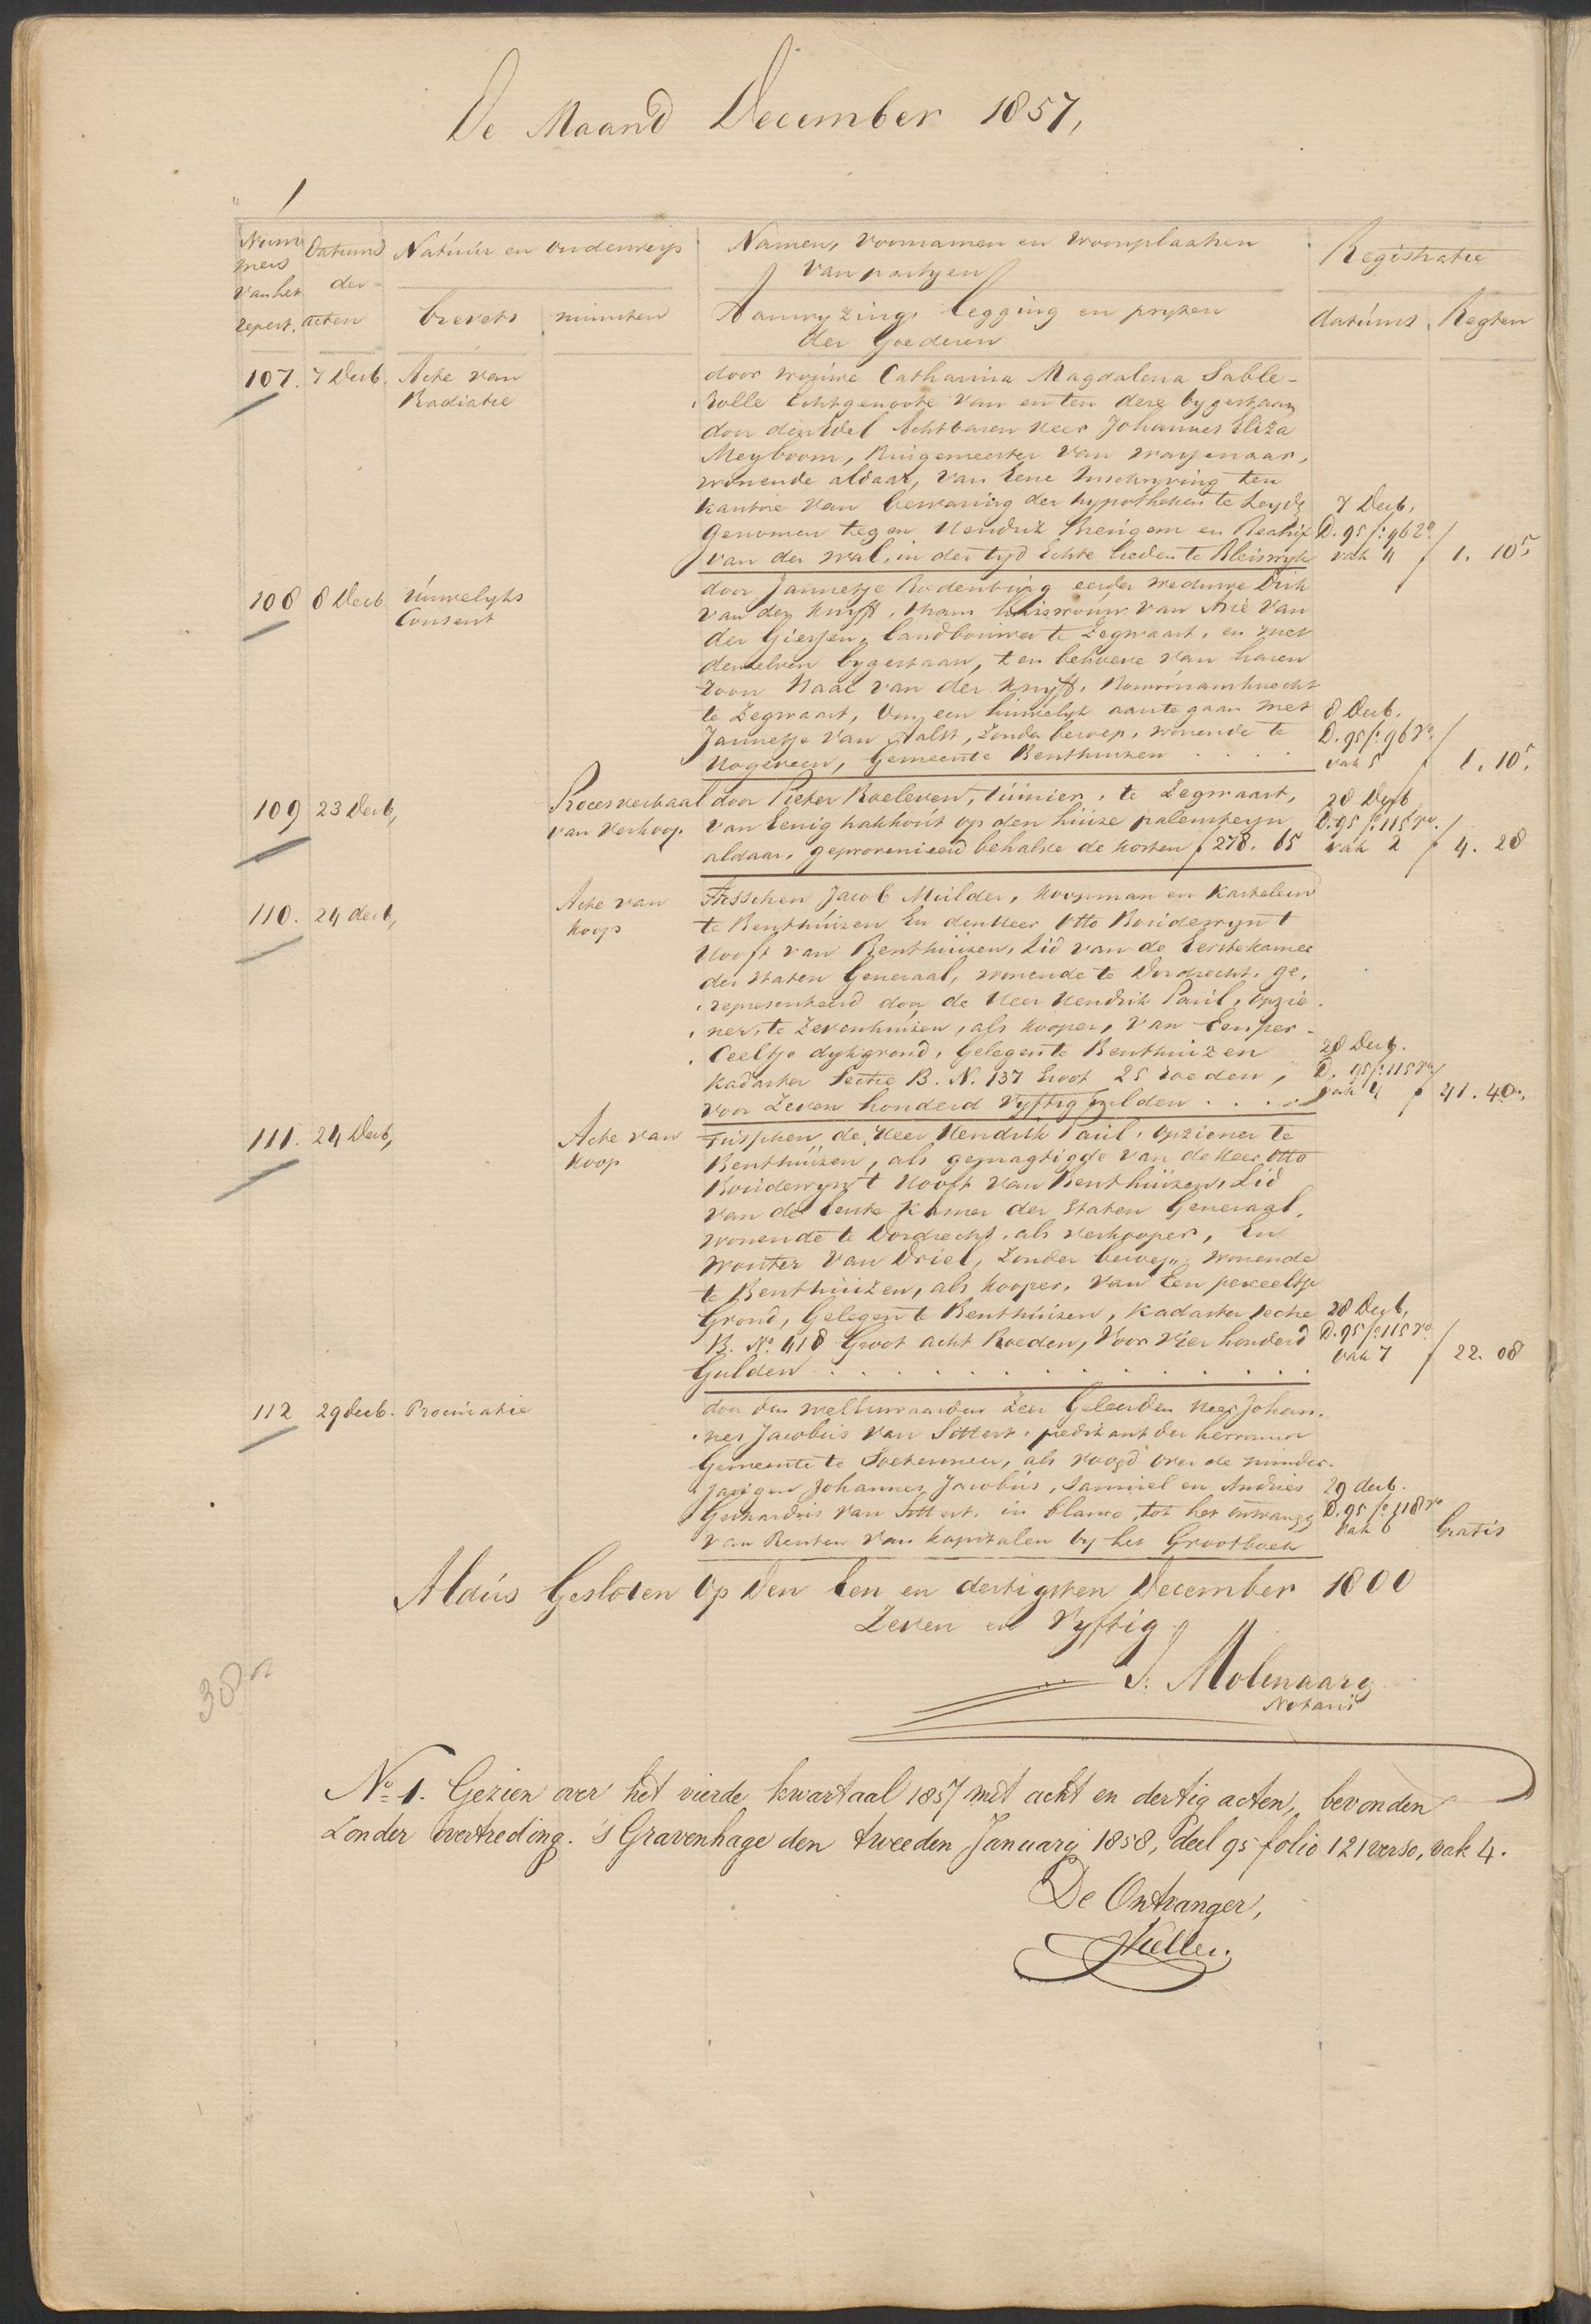 De Maand December 1857,
1
Num Datums Natuur en onderwerp Namen, voornamen en woonplaatsen Registratie
mers der van partyen
van het
repert. acten brevets minuten Aanwyzing, legging en pryzen datums Regten
der Goederen
107. 7 Decb. Acte van door vrouwe Catharina Magdalena Sable-
Radiatie Rolle Echtgenoote van en ten deze bygestaan
door den Edel Achtbaren Heer Johannes Eliza
Meyboom, Burgemeester van Wassenaar,
wonende aldaar, van Eene Inschryving ten
kantore van bewaring der hypotheken te Leyde 7 Decb.
Genomen tegen Hendrik Brengem en D. 95 fo. 96
van der Wal, in der tyd Echte lieden te Bleiswyk vak 4 f 1. 10 5
108 8 Decb Huwelyks door Jannetje Rodenburg eerder weduwe Dirk
Consent van der Knyff, thans huisvrouw van Arie van
der Giessen, landbouwer te Zegwaart, en met
denzelven bygestaan, ten behoeve van haren
zoon Izaac van der Knyff, Bouwmansknecht
te Zegwaart, om een huwelyk aan te gaan met 8 Decb.
Jannetje van Aalst, zonder beroep, wonende te D. 95 fo. 96 vo
Hogeveen, Gemeente Benthuizen . . . . vak 5 f 1. 10 5
109 23 Decb, Procesverbaal door Pieter Roeleven, tuinier, te Zegwaart, 28 Decb
van Verkoop van Eenig hakhout op den huize palensteyn D. 95 fo. 115 ro.
aldaar, geprovenieerd behalve de kosten f 278. 65 vak 2 f 4. 28
110. 24 decb, Acte van Tusschen Jacob Mulder, koopman en Kastelein
koop te Benthuizen En den Heer Otto Boudewyn 't
Hooft van Benthuizen, Lid van de Eerste kamer
der Staten Generaal, wonende te Dordrecht, ge-
representeerd door de Heer Hendrik Paul, opzie-
ner, te Zevenhuizen, als kooper, van Een per-
ceeltje dykgrond, Gelegen te Benthuizen 28 Decb.
Kadaster Sectie B. N. 137 Groot 25 roeden, D. 95 fo. 115 ro
voor Zeven honderd vyftig Gulden . . . . vak 4 f 41. 40.
111. 24 Decb, Acte van Tusschen de Heer Hendrik Paul, opziener te
koop Benthuizen, als gemagtigde van de Heer Otto
Boudewyn 't Hooft van Benthuizen, Lid
van de Eerste Kamer der Staten Generaal,
wonende te Dordrecht, als verkooper, En
Wouter van Driel, Zonder beroep, wonende
te Benthuizen, als kooper, van Een perceeltje
Grond, Gelegen te Benthuizen, Kadaster sectie 28 Decb,
B. No. 418 Groot acht Roeden, Voor Vier honderd D. 95 fo. 115 ro
Gulden . . . . . . . . . . vak 7 f 22. 08
112 29 decb. Procuratie door den weleerwaarden Zeer Geleerden Heer Johan-
nes Jacobus van Sittert, predikant der hervormde
Gemeente te Soetermeer, als voogd over de minder-
jarigen Johannes Jacobus, Samuel en Andries 29 decb.
Gerhardus van Sittert, in blanco, tot het ontvangen D. 95 fo. 118 vo
van Renten van kapitalen by het Grootboek vak 6 Gratis
Aldus Gesloten Op Den Een en dertigsten December 1800
Zeven en Vyftig
38
J. Molenaar
Notaris
No. 1. Gezien over het vierde kwartaal 1857 met acht en dertig acten, bevonden
zonder overtreding. 's Gravenhage den tweeden January 1858, deel 95 folio 121 verso, vak 4.
De Ontvanger,